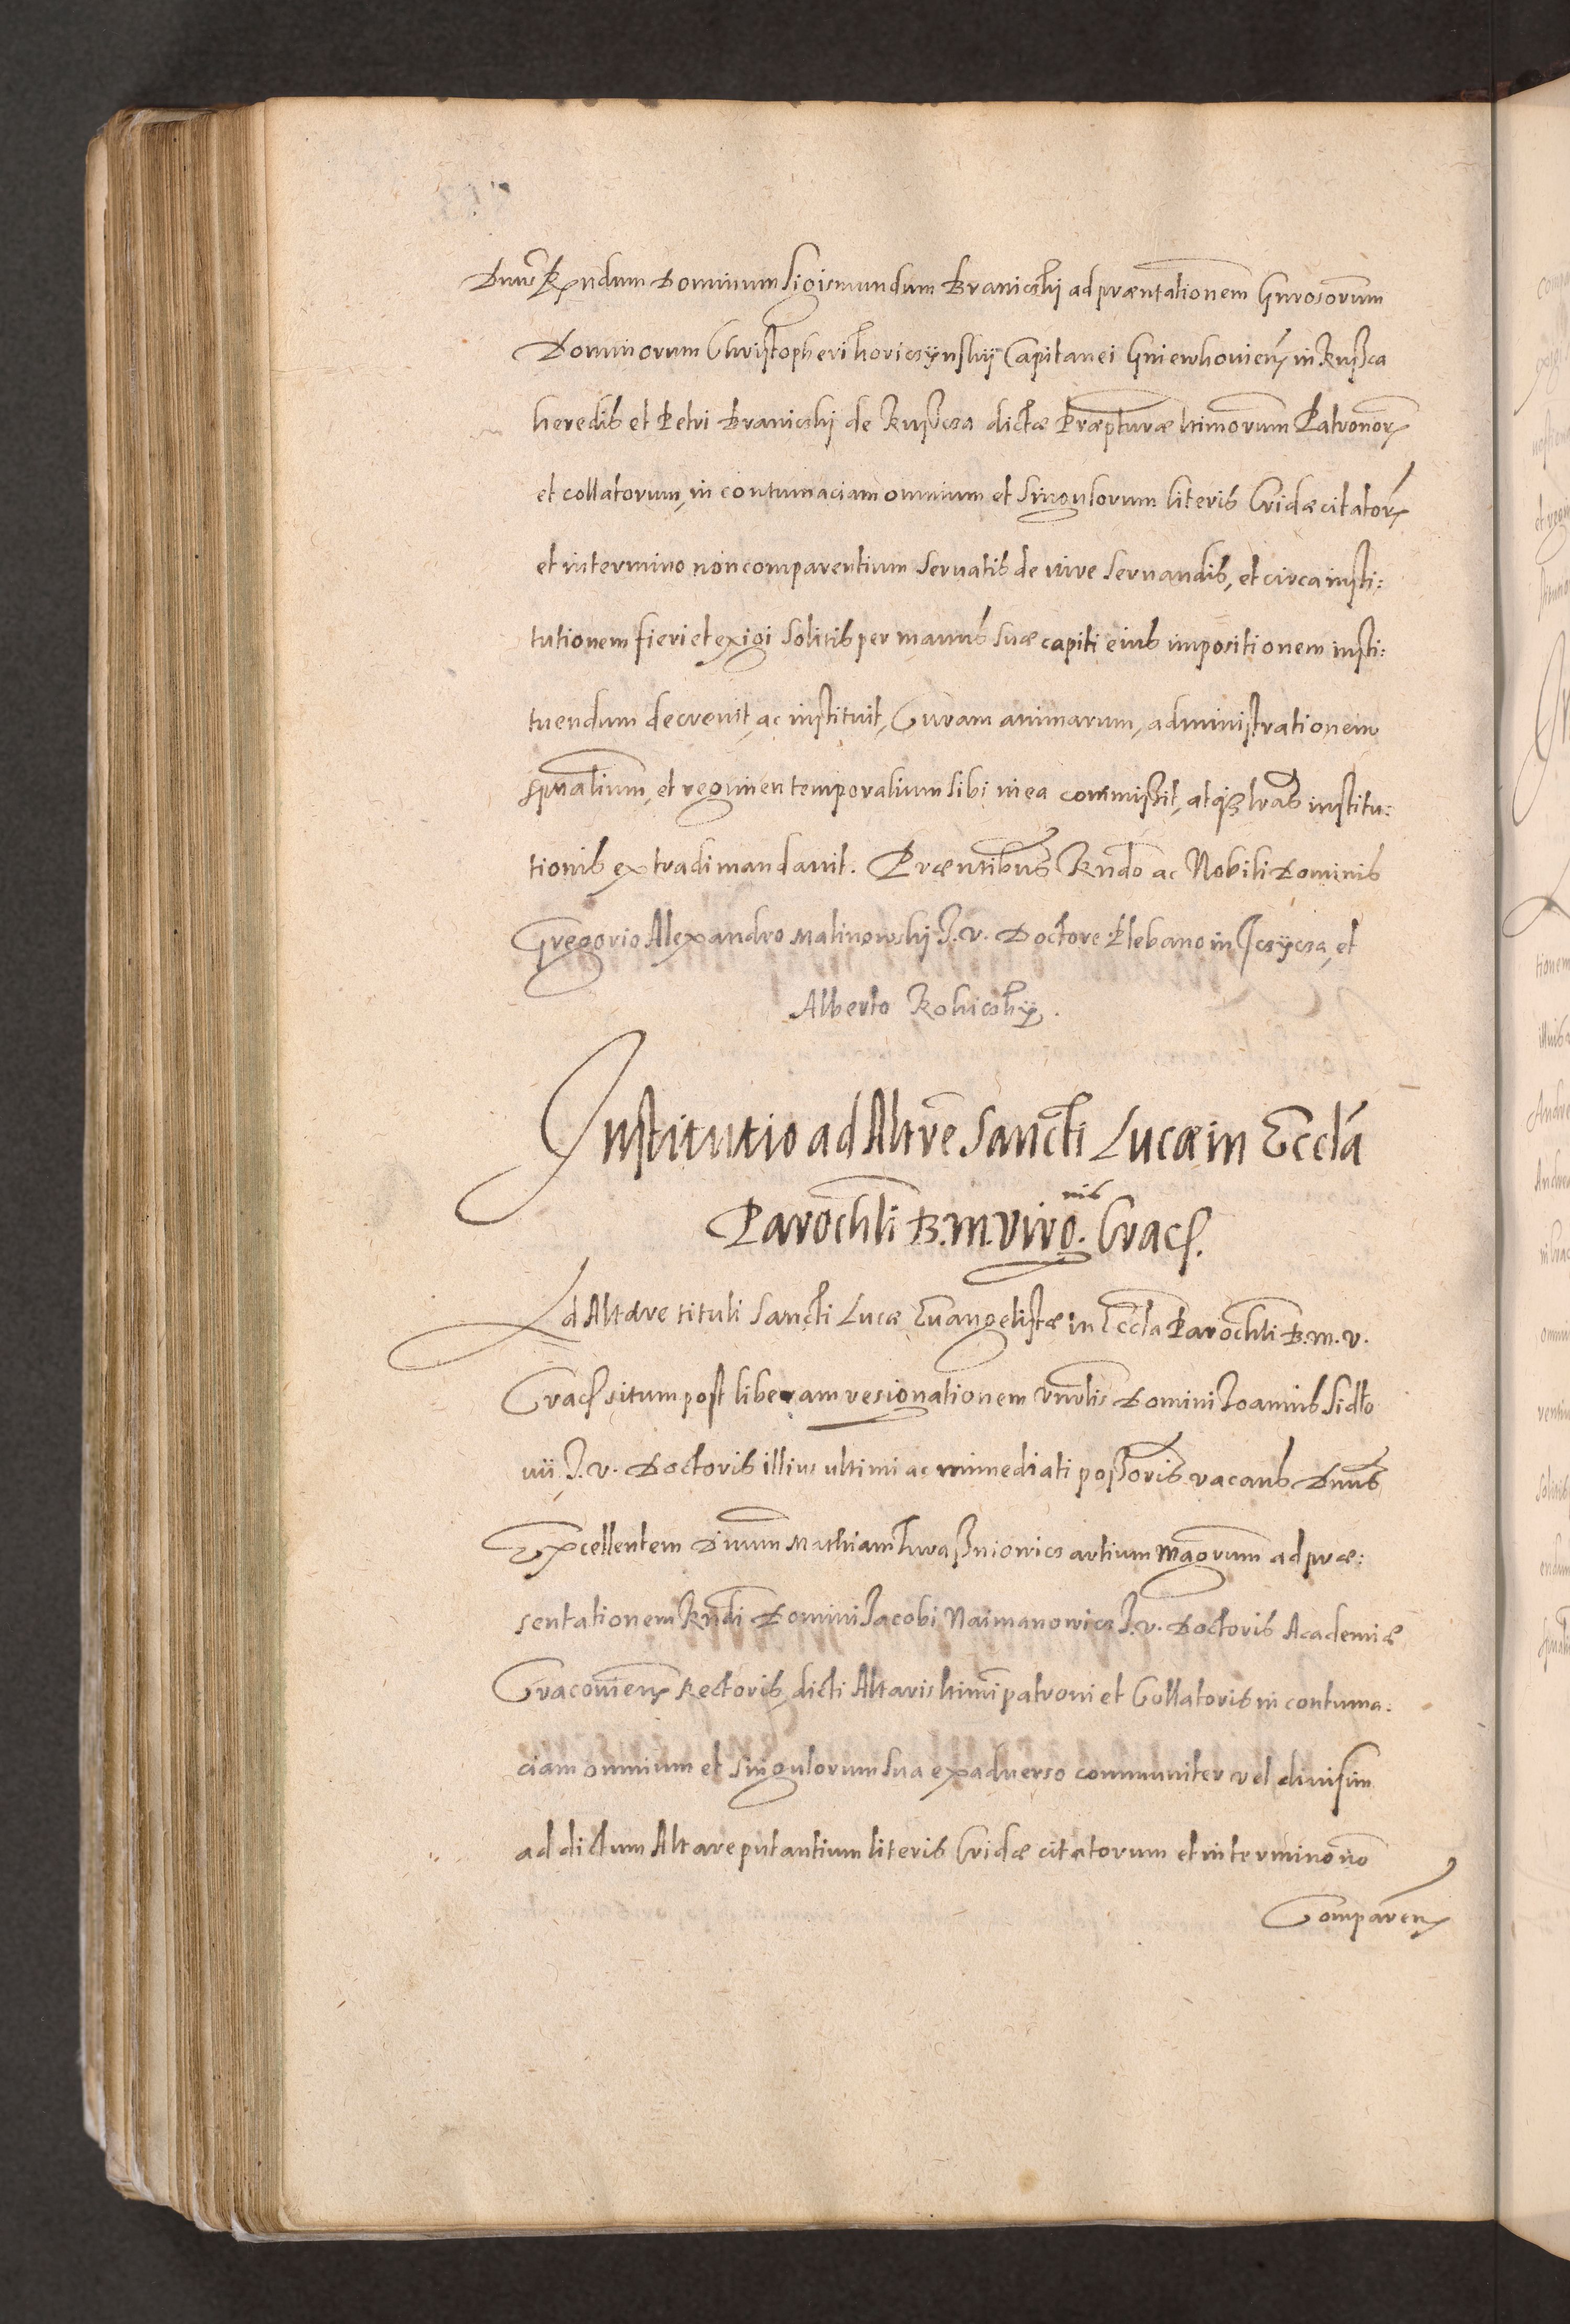 Dnus Rndum Dominum Sigismundum Branicski ad præntationem Gnrosorum
Dominorum Christopheri Koricsÿnskÿ Capitanei Gniewkoviens in Rußca
heredis et Petri Branicski de Rußcza dictæ Præpturæ ltimorum Patronor
et collatorum, in contumaciam omnium et singulorum literis Cridæ citator
et in termino non comparentium servatis de iure servandis, et circa insti:
tutionem fieri et exigi solitis per manus suæ capiti eius impositionem insti:
tuendum decrevit, ac instituit, Curam animarum, administrationem
spualium, et regimen temporalium sibi in ea commißit, atqz lras institu:
tionis extradi mandavit. Præntibus Rndo ac Nobili Dominis
Gregorio Alexandro Malinowski J. V. Doctore Plebano in et
Alberto
Institutio ad Altre Sancti Lucæ in Eccla
Parochli B. M. Virginis Crac.
Ad Altare tituli Sancti Lucæ Evangelistæ in Eccla Parochli B. M. V.
Crac situm post liberam resignationem Vnrlis Domini Joannis Sidlo
vii J. V. Doctoris illius ultimi ac immediati poßoris vacans Dnus
Excellentem Dnum Mathiam artium Magrum ad præ:
sentationem Rndi Domini Jacobi Naimanowics J. V. Doctoris Academiæ
Cracoviens Rectoris, dicti Altaris ltimi patroni et Collatoris in contuma:
ciam omnium et singulorum sua ex adverso communiter vel divisim
ad dictum Altare putantium literis Cridæ citatorum et in termino no
Comparen